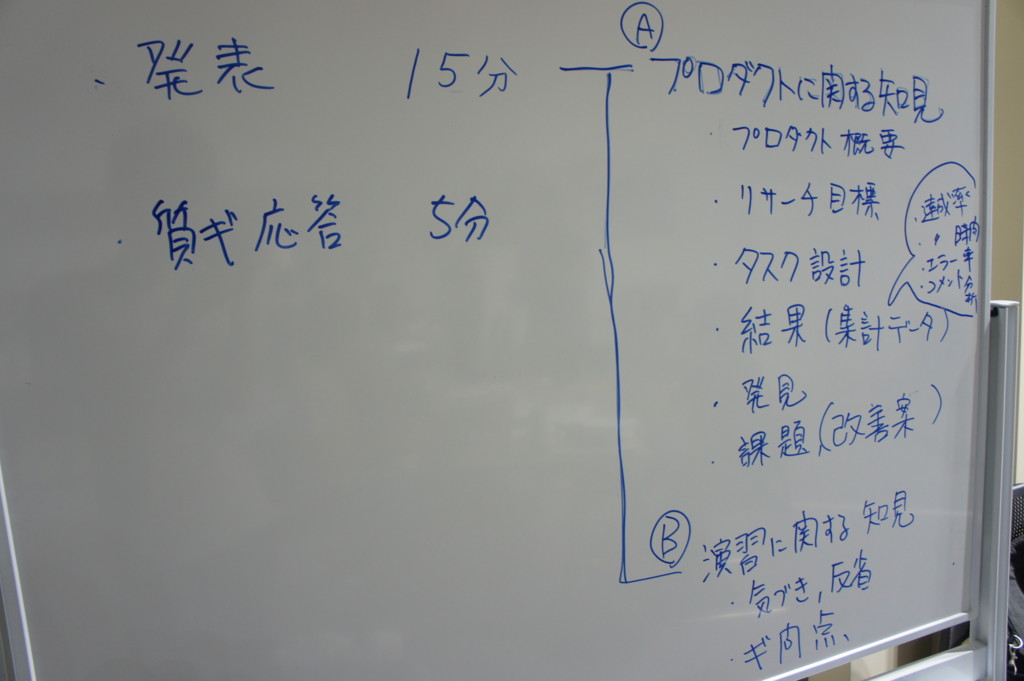 ・発表 15分
・質ギ応答 5分
Ⓐ
プロダクトに関する知見
・プロダクト概要
・リサーチ目標
・タスク設計
・結果(集計データ)
・達成率
・〃 時間
・エラー率
・コメント分析
・発見
・課題(改善案)
Ⓑ
演習に関する知見
・気づき,反省
・ギ問点